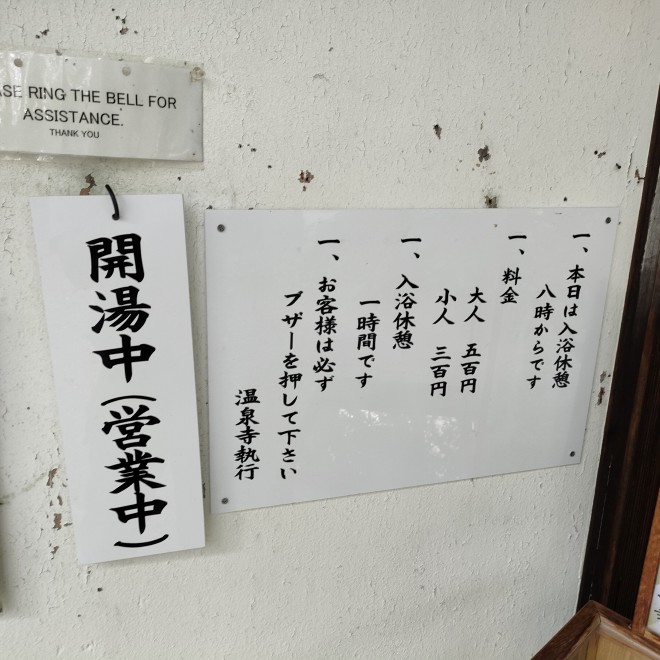 RING THE BELL FOR
ASSISTANCE.
THANK YOU
開湯中(営業中)
一、本日は入浴休憩
八時からです
一、料金
大人 五百円
小人 三百円
一、入浴休憩
一時間です
一、お客様は必ず
ブザーを押して下さい
温泉寺執行